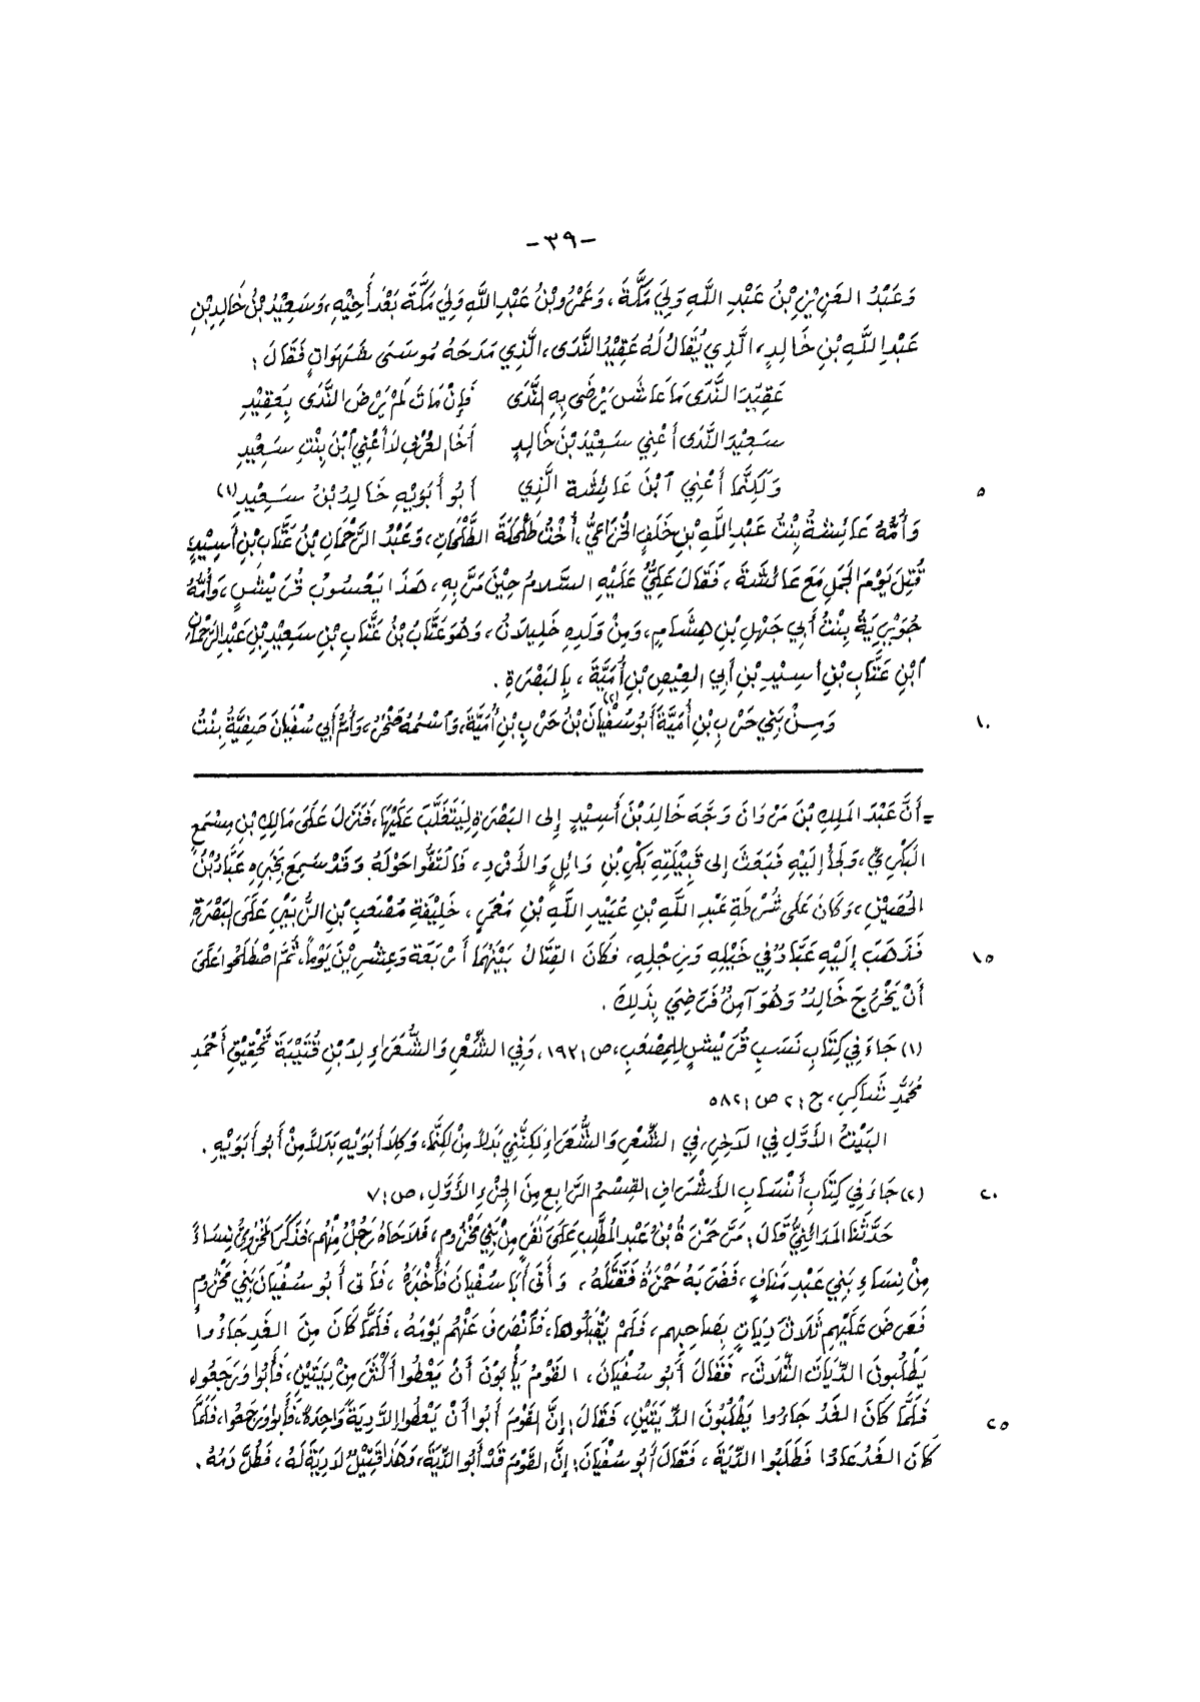 -٣٩-
وَعَبْدُ العَزِيْزِ بْنُ عَبْدِ اللَّهِ وَلِيَ مَكَّةَ، وَعَمْرُو بْنُ عَبْدِ اللَّهِ وَلِيَ مَكَّةَ بَعْدَ أَخِيْهِ، وَسَعِيْدُ بْنُ خَالِدِ بْنِ
عَبْدِ اللَّهِ بْنِ خَالِدٍ، الَّذِي يُقَالُ لَهُ عَقِيْدُ النَّدَى، الَّذِي مَدَحَهُ مُوسَى شَهَوَاتٍ فَقَالَ:
عَقِيْدَ النَّدَى مَا عَاشَ يَرْضَى بِهِ النَّدَى فَإِنْ مَاتَ لَمْ يَرْضَ النَّدَى بِعَقِيْدِ
سَعِيْدَ النَّدَى أَعْنِي سَعِيْدَ بْنَ خَالِدٍ أَخَا العُرْفِ لَا أَعْنِي ٱبْنَ بِنْتِ سَعِيْدِ
وَلَكِنَّمَا أَعْنِي ٱبْنَ عَائِشَةَ الَّذِي أَبُو أَبَوَيْهِ خَالِدُ بْنُ سَعِيْدِ (١)
٥
وَأُمُّهُ عَائِشَةُ بِنْتُ عَبْدِ اللَّهِ بْنِ خَلَفٍ الخُزَاعِيِّ، أُخْتُ طَلْحَةَ الطَّلَحَاتِ، وَعَبْدُ الرَّحْمَانِ بْنُ عَتَّابِ بْنِ أَسِيْدٍ
قُتِلَ يَوْمَ الجَمَلِ مَعَ عَائِشَةَ، فَقَالَ عَلِيٌّ عَلَيْهِ السَّلَامُ حِيْنَ مَرَّ بِهِ، هَذَا يَعْسُوبُ قُرَيْشٍ، وَأُمُّهُ
جُوَيْرِيَةُ بِنْتُ أَبِي جَهْلِ بْنِ هِشَامٍ، وَمِنْ وَلَدِهِ خَلِيلَانُ، وَهُوَ عَتَّابُ بْنُ عَتَّابِ بْنِ سَعِيْدِ بْنِ عَبْدِ الرَّحْمَانِ
ٱبْنِ عَتَّابِ بْنِ أَسِيْدِ بْنِ أَبِي العِيْصِ بْنِ أُمَيَّةَ، بِالبَصْرَةِ.
وَمِنْ بَنِي حَرْبِ بْنِ أُمَيَّةَ أَبُو سُفْيَانَ (٢) بْنُ حَرْبِ بْنِ أُمَيَّةَ، وَٱسْمُهُ صَخْرٌ، وَأُمُّ أَبِي سُفْيَانَ صَفِيَّةُ بِنْتُ
١٠
= أَنَّ عَبْدَ المَلِكِ بْنَ مَرْوَانَ وَجَّهَ خَالِدَ بْنَ أَسِيْدٍ إِلى البَصْرَةِ لِيَتَغَلَّبَ عَلَيْهَا، فَنَزَلَ عَلَى مَالِكِ بْنِ مِسْمَعٍ
البَكْرِيِّ، وَلَجَأَ إِلَيْهِ فَبَعَثَ إِلى قَبِيْلَتِهِ بَكْرِ بْنِ وَائِلٍ وَالأَزْدِ، فَالتَفُّوا حَوْلَهُ وَقَدْ سَمِعَ بِخَبَرِهِ عَبَّادُ بْنُ
الحُصَيْنِ، وَكَانَ عَلَى شُرْطَةِ عَبْدِ اللَّهِ بْنِ عُبَيْدِ اللَّهِ بْنِ مَعْمَرٍ، خَلِيْفَةِ مُصْعَبِ بْنِ الزُّبَيْرِ عَلَى البَصْرَةِ
فَذَهَبَ إِلَيْهِ عَبَّادٌ فِي خَيْلِهِ وَرَجْلِهِ، فَكَانَ القِتَالُ بَيْنَهُمَا أَرْبَعَةً وَعِشْرِيْنَ يَوْماً، ثُمَّ اصْطَلَحُوا عَلَى
١٥
أَنْ يَخْرُجَ خَالِدٌ وَهُوَ آمِنٌ فَرَضِيَ بِذَلِكَ.
(١) جَاءَ فِي كِتَابِ نَسَبِ قُرَيْشٍ لِلمِصْعَبِ، ص: ١٩٢، وَفِي الشِّعْرِ وَالشُّعَرَاءِ لِابْنِ قُتَيْبَةَ تَحْقِيْقِ أَحْمَدِ
مُحَمَّدِ شَاكِرِ، ج: ٢ ص: ٥٨٢
البَيْتُ الأَوَّلِ فِي الآخِرِ، فِي الشِّعْرِ وَالشُّعَرَاءِ لَكِنَّنِي بَدَلاً مِنْ لَكِنَّمَا، وَكِلَا أَبَوَيْهِ بَدَلاً مِنْ أَبُو أَبَوَيْهِ.
(٢) جَاءَ فِي كِتَابِ أَنْسَابِ الأَشْرَافِ القِسْمُ الرَّابِعِ مِنَ الجُزْءِ الأَوَّلِ، ص: ٧
٢٠
حَدَّثَنَا المَدَائِنِيُّ قَالَ: مَرَّ حَمْزَةُ بْنُ عَبْدِ المُطَّلِبِ عَلَى نَفَرٍ مِنْ بَنِي مَخْزُومٍ، فَلَاحَاهُ رَجُلٌ مِنْهُم، فَذَكَرَ المَخْزُومِيُّ نِسَاءً
مِنْ نِسَاءِ بَنِي عَبْدِ مَنَافٍ، فَضَرَبَهُ حَمْزَةُ فَقَتَلَهُ، وَأَتَى أَبَا سُفْيَانَ فَأَخْبَرَهُ، فَأَتَى أَبُو سُفْيَانَ بَنِي مَخْزُومٍ
فَعَرَضَ عَلَيْهِم ثَلَاثَ دِيَاتٍ بِصَاحِبِهِم، فَلَمْ يَقْبَلُوهَا، فَٱنْصَرَفَ عَنْهُم يَوْمَهُ، فَلَمَّا كَانَ مِنَ الغَدِ جَاءُوا
يَطْلُبُونَ الدِّيَاتِ الثَّلَاثَ، فَقَالَ أَبُو سُفْيَانَ، القَوْمُ يَأْبَوْنَ أَنْ يَعْطُوا أَكْثَرَ مِنْ دِيَتَيْنِ، فَأَبُوا وَرَجَعُوا،
فَلَمَّا كَانَ الغَدُ جَاءُوا يَطْلُبُونَ الدِّيَتَيْنِ، فَقَالَ: إِنَّ القَوْمَ أَبُوا أَنْ يَعْطُوا إِلَّا دِيَةً وَاحِدَةً، فَأَبُوا وَرَجَعُوا، فَلَمَّا
٢٥
كَانَ الغَدُ عَادُوا فَطَلَبُوا الدِّيَةَ، فَقَالَ أَبُو سُفْيَانَ: إِنَّ القَوْمَ قَدْ أَبُوا الدِّيَةَ، وَهَذَا قَتِيْلٌ لَا دِيَةَ لَهُ، فَطُلَّ دَمُهُ.